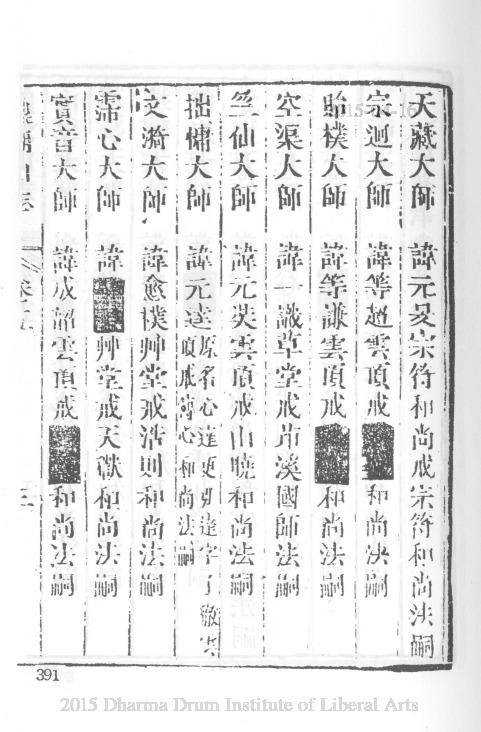 天藏大師 諱元旻宗符和尚戒宗符和尚法嗣
宗迥大師 諱等超雲頂戒 和尚法嗣
貽樸大師 諱等謙雲頂戒 和尚法嗣
空渠大師 諱一識草堂戒茚溪國師法嗣
竺仙大師 諱元英雲頂戒山曉和尚法嗣
拙慵大師 諱元達原名心達更別達字了徹雲頂戒 心和尚法嗣
文漪大師 諱愈樸艸堂戒浩則和尚法嗣
霈心大師 諱 艸堂戒天嶽和尚法嗣
實音大師 諱成韶雲頂戒 和尚法嗣
山志
卷五
三
391
2015 Dharma Drum Institute of Liberal Arts